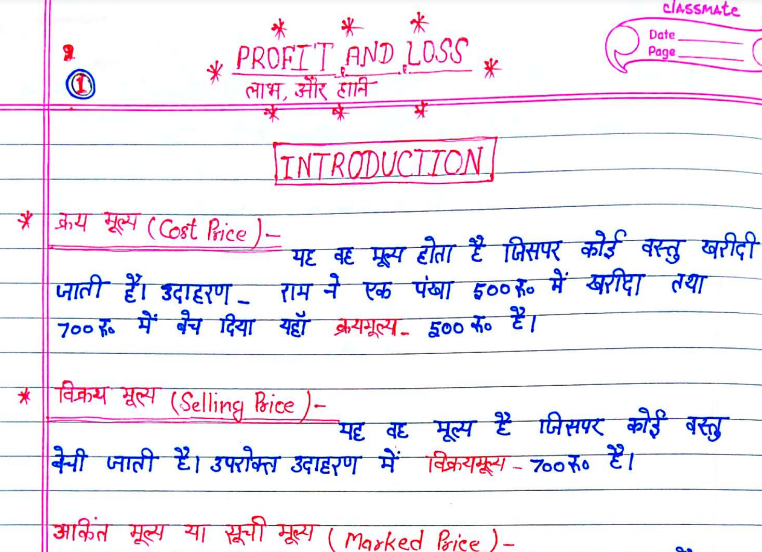 classmate
Date
Page
PROFIT AND LOSS
लाभ, और हानि
1
INTRODUCTION
* क्रय मूल्य (Cost Price) –
यह वह मूल्य होता है जिसपर कोई वस्तु खरीदी
जाती है। उदाहरण – राम ने एक पंखा 500 रू० में खरीदा तथा
700 रू० में बेच दिया यहाँ क्रयमूल्य – 500 रू० है।
* विक्रय मूल्य (Selling Price) –
यह वह मूल्य है जिसपर कोई वस्तु
बेची जाती है। उपरोक्त उदाहरण में विक्रयमूल्य – 700 रू० है।
अकिंत मूल्य या सूची मूल्य (Marked Price) –